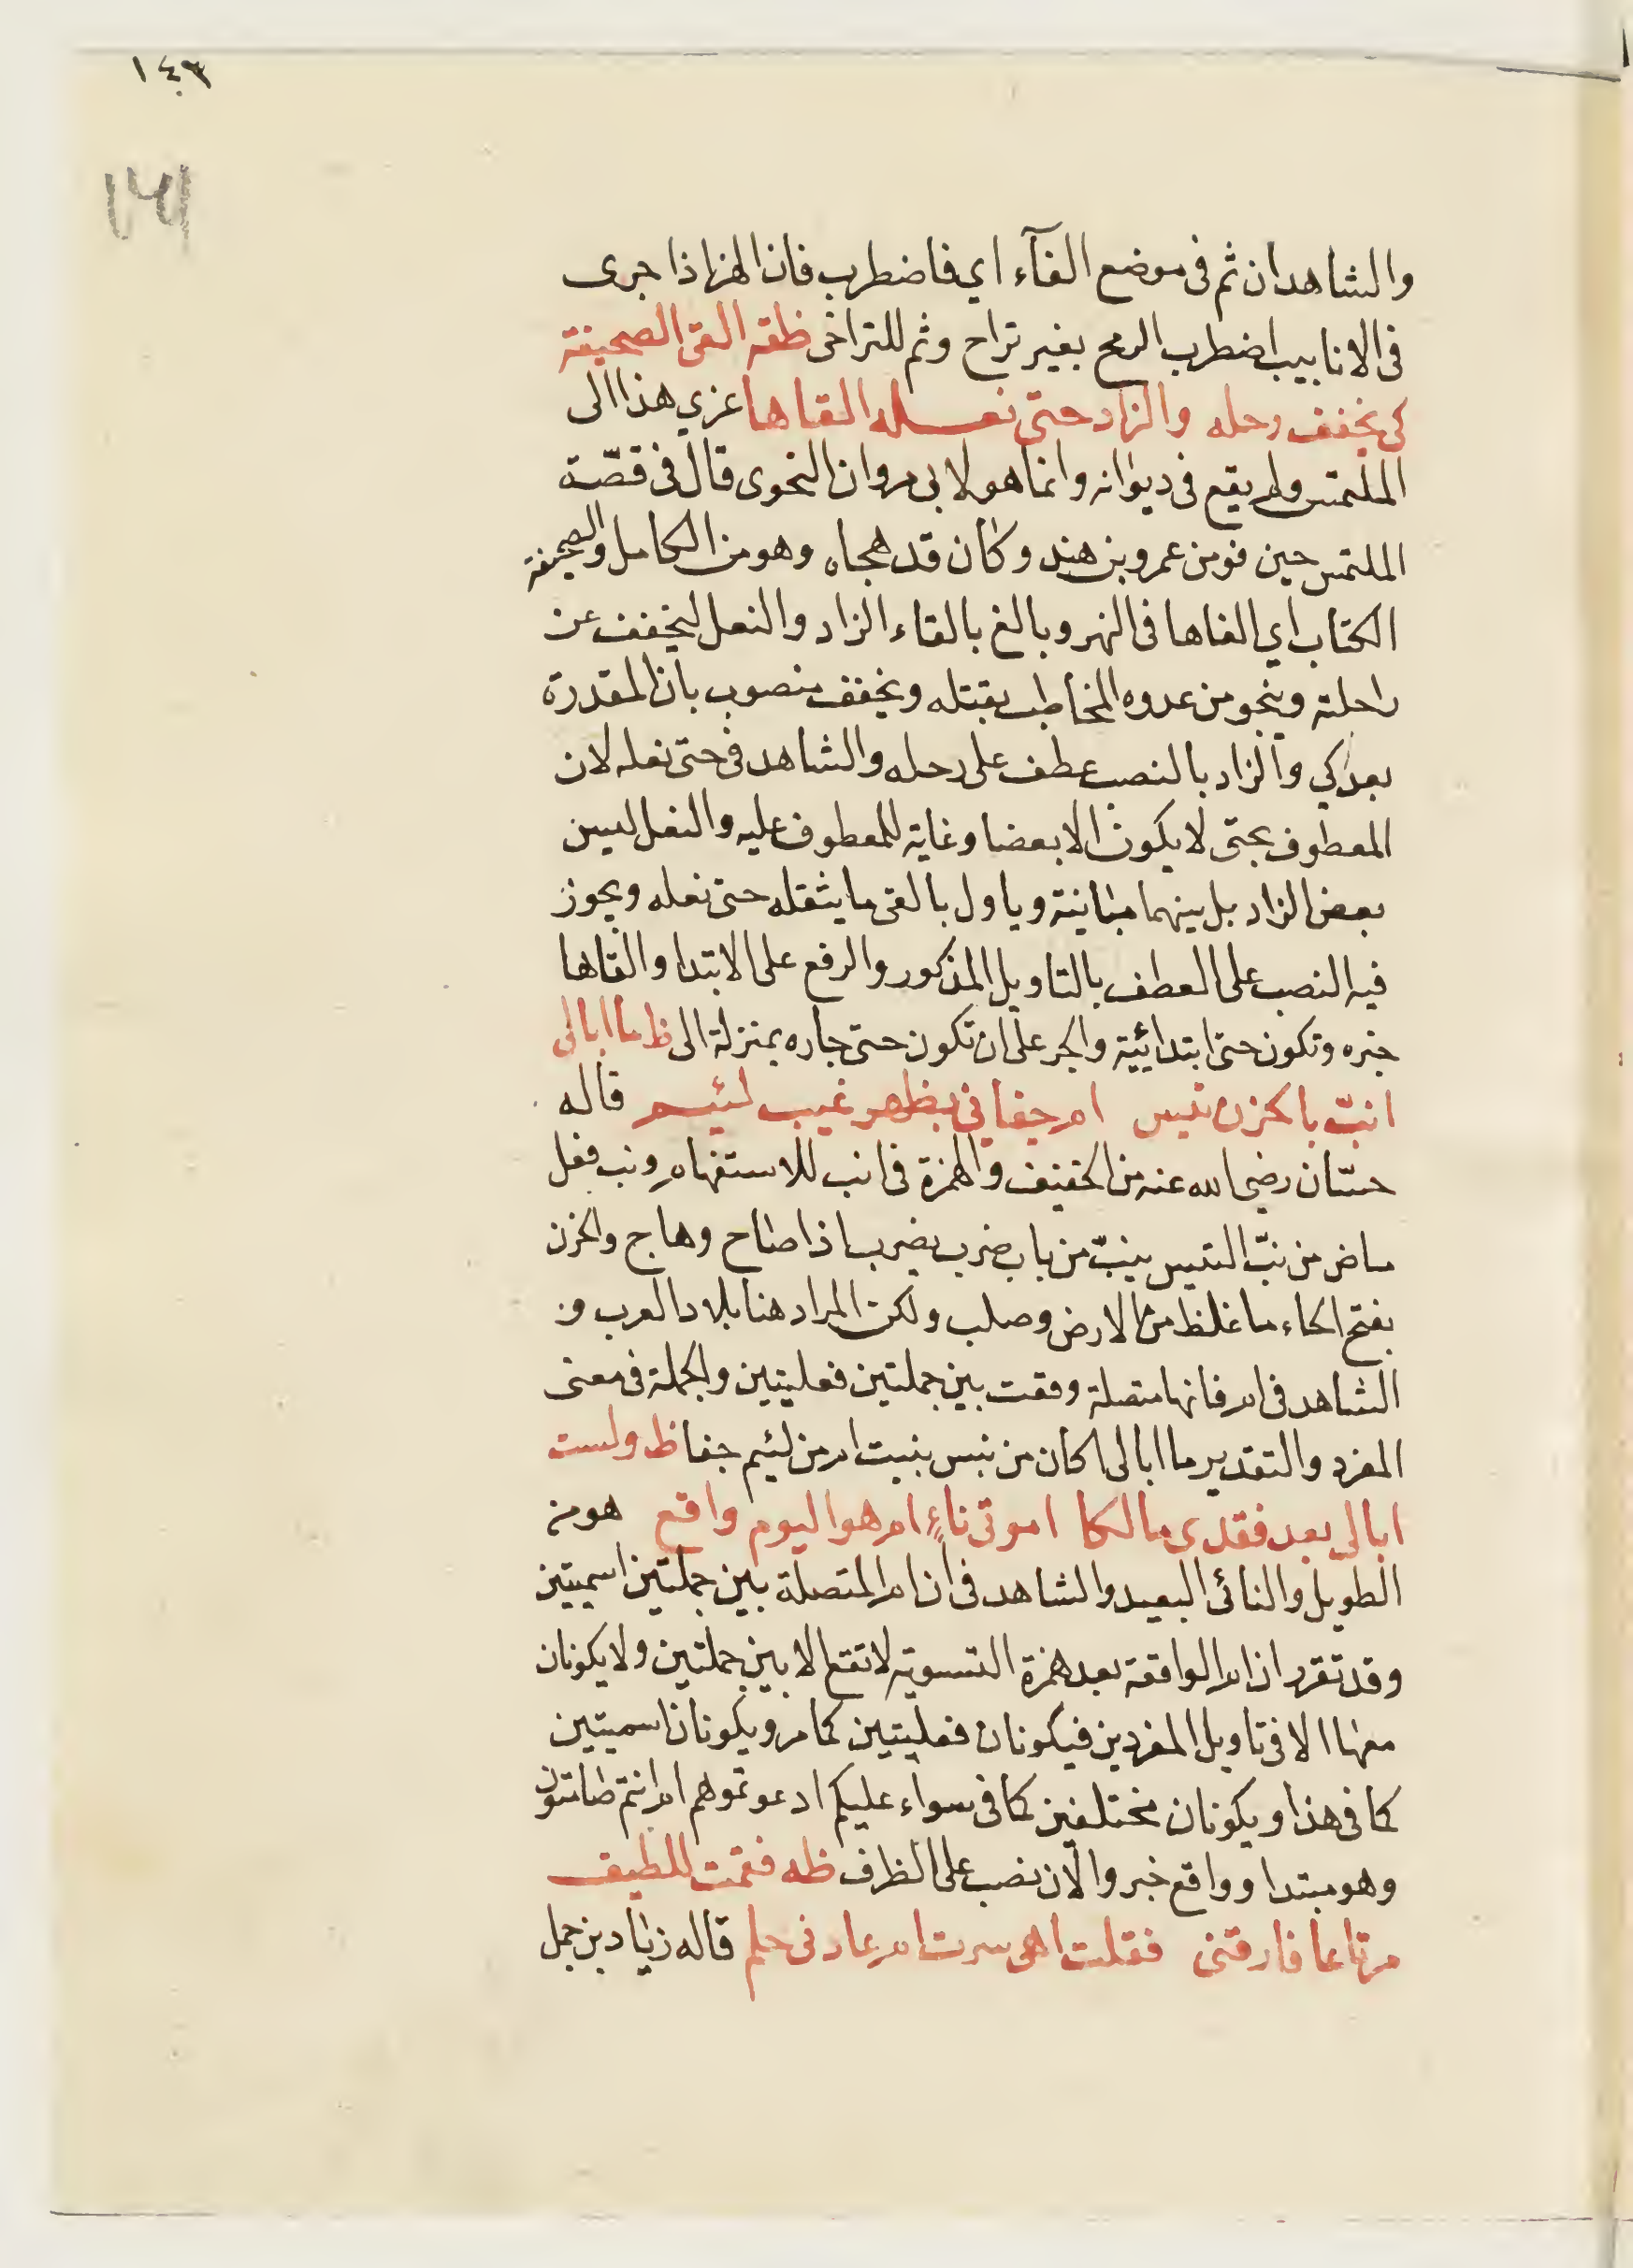 ١٤٣
١٤١
والشاهد ان ثم فى موضع الفآء اي فاضطرب فان الهز اذا جرى
فى الانابيب اضطرب الرمح بغير تراح وثم للتراخى ظقه القى الصحيفة
كى يخفف رحله والزاد حتى نعله القاها عزي هذا الى
الملتمس ولم يقع فى ديوانه وانما هو لابى مروان النحوى قال فى قصّة
الملتمس حين فر من عمرو بن هند وكان قد هجاه وهو من الكامل والصحيفة
الكتاب اي القاها فى النهر وبالغ بالقاء الزاد والنعل ليخفف عن
راحلته وينجو من عدوه المخاطب بقتله ويخفف منصوب بان المقدرة
بعد كي والزاد بالنصب عطف على رحله والشاهد فى حتى نعله لان
المعطوف بحتى لا يكون الا بعضا وغاية للمعطوف عليه والنعل ليس
بعض الزاد بل بينهما مباينة وياول بالقى ما يثقله حتى نعله ويجوز
فيه النصب على العطف بالتاويل المذكور والرفع على الابتدا والقاها
خبره وتكون حتى ابتدائية والجر على ان تكون حتى جاره بمنزلة الى ظ ما ابالى
انبّ بالحزن تيس ام جفانى بظهر غيب لئيم قاله
حسّان رضى الله عنه من الخفيف والهمزة فى انب للاستفهام ونب فعل
ماض من نبّ التيس ينبّ من باب ضرب يضرب اذا صاح وهاج والحزن
بفتح الحاء ما غلظ من الارض وصلب ولكن المراد هنا بلاد العرب و
الشاهد فى ام فانها متصلة وقعت بين جملتين فعليتين والجملة فى معنى
المفرد والتقدير ما ابالى اكان من تيس نبيت ام من لئيم جفا ظ ولست
ابالى بعد فقدى مالكا اموتى ناءٍ ام هو اليوم واقع هو من
الطويل والنائى البعيد والشاهد فى ان ام المتصلة بين جملتين اسميتين
وقد تقرر ان ام الواقعة بعد همزة التسوية لا تقع الا بين جملتين ولا يكونان
معها الا فى تاويل المفردين فيكونان فعليتين كما مر ويكونان اسميتين
كما فى هذا ويكونان مختلفين كما فى سواء عليكم ادعوتموهم ام انتم صامتون
وهو مبتدا وواقع خبر والآن نصب على الظرف ظه فقمت للطيف
مرتاعا فارقنى فقلت اهى سرت ام عاد فى حلم قاله زياد بن حمل